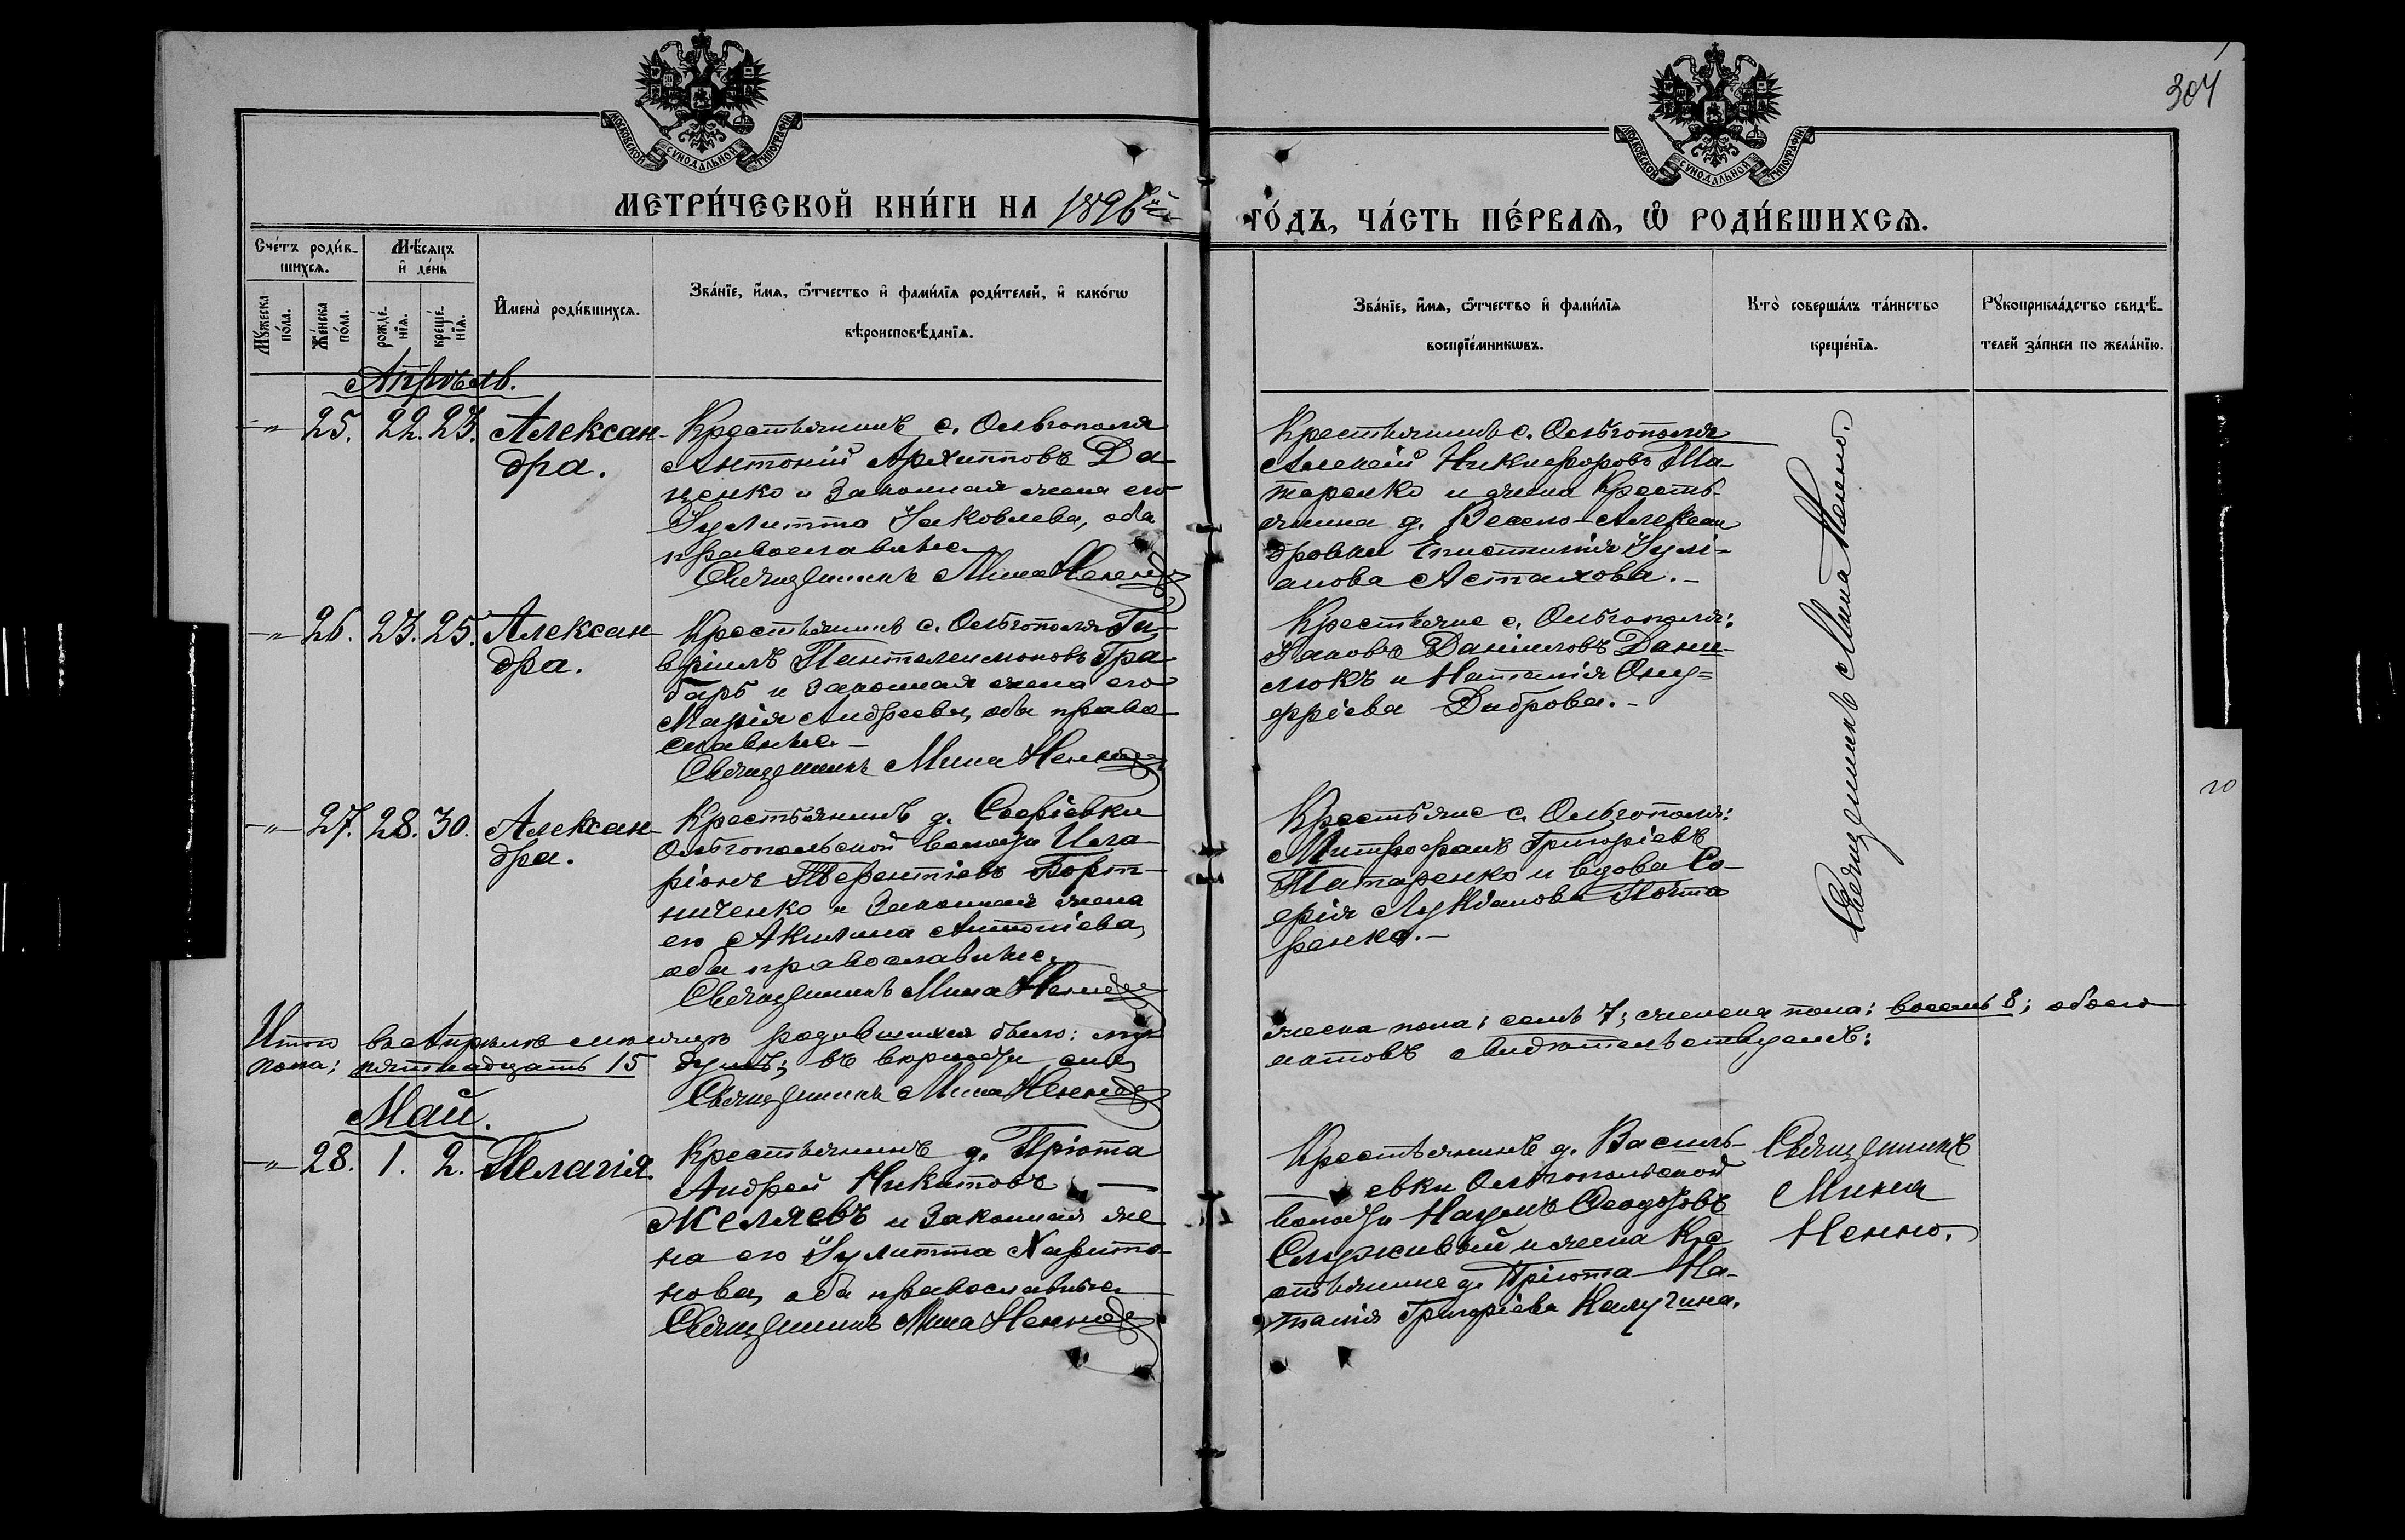 304
МОСКОВСКОЙ СѴНОДАЛЬНОЙ ТИПОГРАФІИ
МОСКОВСКОЙ СѴНОДАЛЬНОЙ ТИПОГРАФІИ
МЕТРИ́ЧЕСКОЙ КНИ́ГИ НА 1896й
ГО́ДЪ, ЧА́СТЬ ПЕ́РВАѦ, Ѽ РОДИ́ВШИХСѦ.
Сче́тъ роди́в-
шихсѧ.
Мѣ́сѧцъ
и҆ де́нь
Мꙋ́жеска
по́ла.
Же́нска
по́ла.
рожде́-
нїѧ.
креще́-
нїѧ.
И҆мена̀ роди́вшихсѧ.
Зва́нїе, и҆́мѧ, ѻ҆́тчество и҆ фами́лїѧ роди́телей, и҆ како́гѡ
вѣроисповѣ́данїѧ.
Зва́нїе, и҆́мѧ, ѻ҆́тчество и҆ фами́лїѧ
воспрїе́мникѡвъ.
Кто̀ соверша́лъ та́инство
креще́нїѧ.
Рꙋкоприкла́дство свидѣ́-
телей за́писи по жела́нїю.
Апрѣль.
-"- 25. 22. 23. Алексан-
дра.
Крестьянинъ с. Ольгополя
Антоній Архипповъ Да-
ценко и законная жена его
Іулитта Іаковлева, оба
православные.
Священникъ Мина Ненно
Крестьянинъ с. Ольгополя
Алексій Никифоровъ Та-
таренко и жена кресть-
янина д. Весело-Алексан
дровки Епистимія Іулі-
анова Астахова.-
-"- 26. 23. 25. Алексан
дра.
Крестьянинъ с. Ольгополя Га-
вріилъ Пантелеимоновъ Гра-
барь и законная жена его
Марія Андреева, оба право
славные.-
Священникъ Мина Ненно
Крестьяне с. Ольгополя:
Іаковъ Даніиловъ Дани-
люкъ и Наталія Ону-
фріева Диброва.-
-"- 27. 28. 30. Алексан
дра.
Крестьянинъ д. Софіевки
Ольгопольской волости Ила-
ріонъ Терентіевъ Борт-
ниченко и законная жена
его Акилина Антоніева,
оба православные.
Священникъ Мина Ненно
Крестьяне с. Ольгополя:
Митрофанъ Григоріевъ
Татаренко и вдова Со-
фія Лукіанова
ренко.-
Священникъ Мина Ненно.
Итого въ Апрѣлѣ мѣсяцѣ родившихся было: му-
жеска пола: семь 7; женска пола: восемь 8; обоего
пола: пятнадцать 15 душъ; въ вѣрности сихъ
актовъ свидѣтельствуемъ:
Священникъ Мина Ненно
Май.
-"- 28. 1. 2. Пелагія
Крестьянинъ д. Пріюта
Андрей Никитовъ —
Желяевъ и законная же
на его Іулитта Харито-
нова, оба православные
Священникъ Мина Ненно
Крестьянинъ д. Василь-
евки Ольгопольской
волости Наумъ Ѳеодоровъ
Служивый и жена кре
стьянина д. Пріюта На-
талія Григоріева Калугина.
Священникъ
Мина
Ненно.